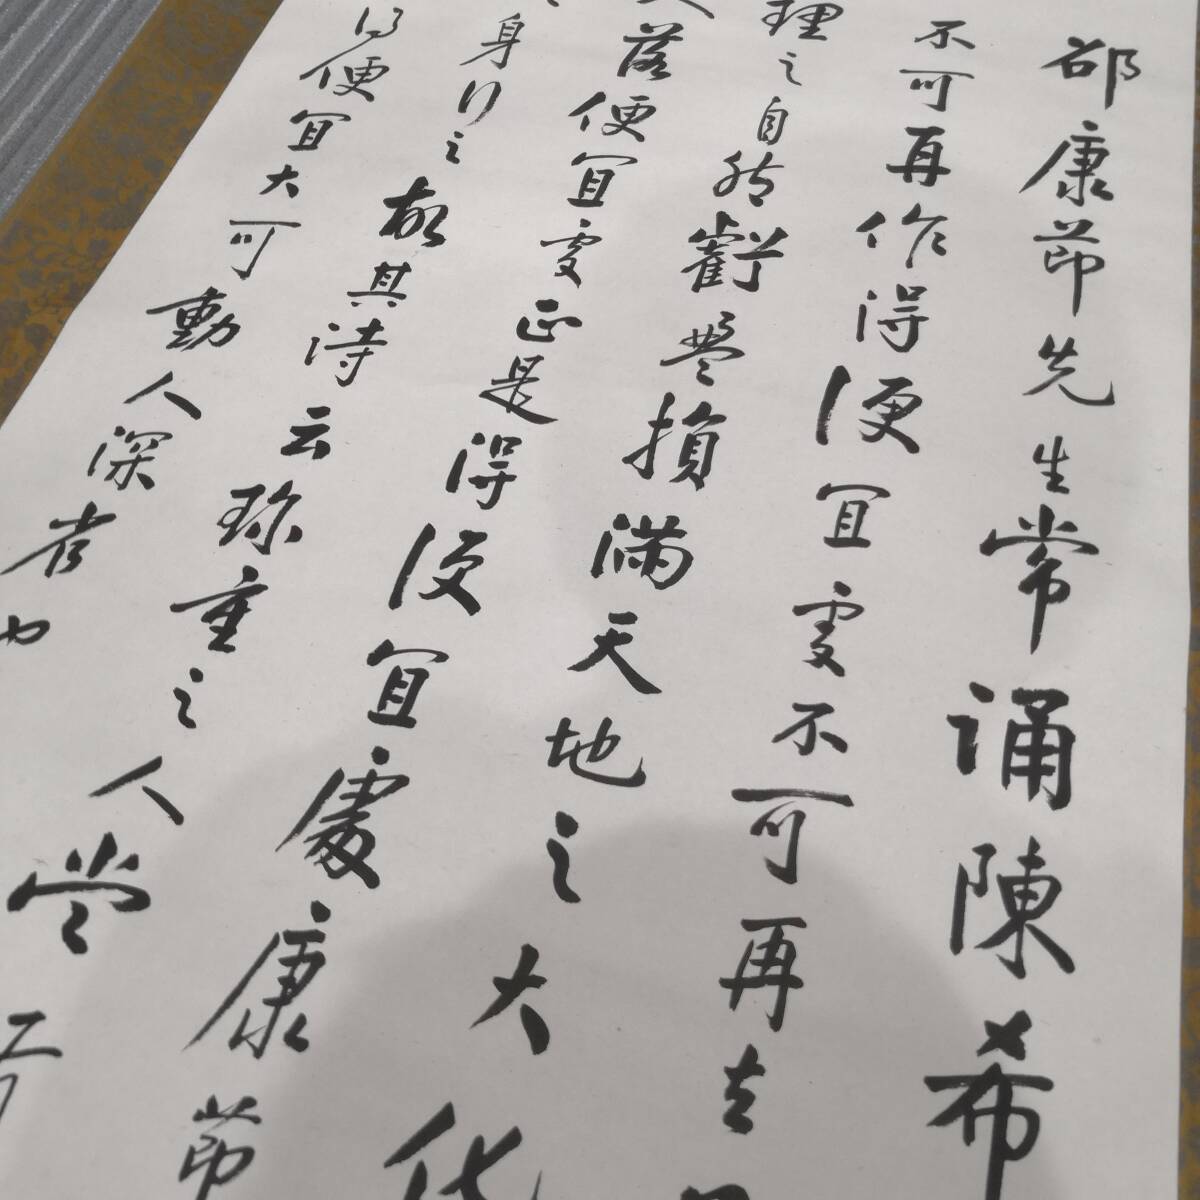 邵康節先生常誦陳希
不可再作得便宜處不可再去
理之自然虧盈損滿天地之大化
落便宜處正是得便宜處康節
身行之故其詩云珍重之人嘗
得便宜大可動人深省也